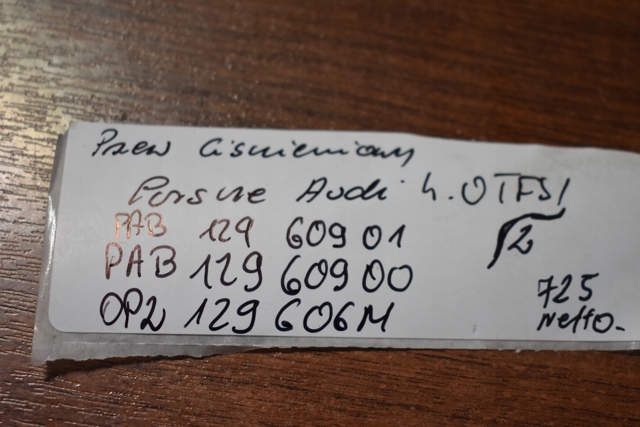 Przew Ciśnieniowy
Porsche Audi 4.0TFSI
PAB 129 609 01
2
PAB 129 609 00
725
OP2 129 606M
Netto.